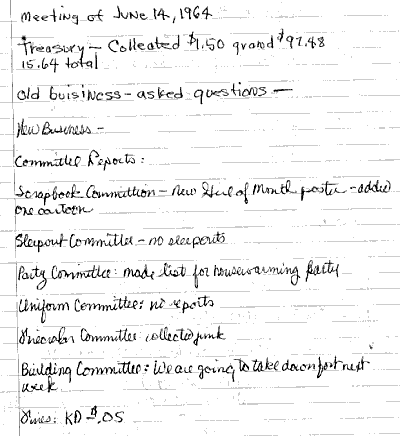 Meeting of June 14, 1964
Treasury - Collected $1.50 grand $97.48
15.64 total
old buisiness - asked questions -
New Business -
Committee Reports:
Scrapbook Committion - New Girl of Month poster - added
one cartoon
Sleepout Committee - no reports
Party Committee: made list for housewarming party
Uniform Committee: no reports
Committee collected junk
Building Committee: We are going to take down fort next
week
Dues: KD $.05